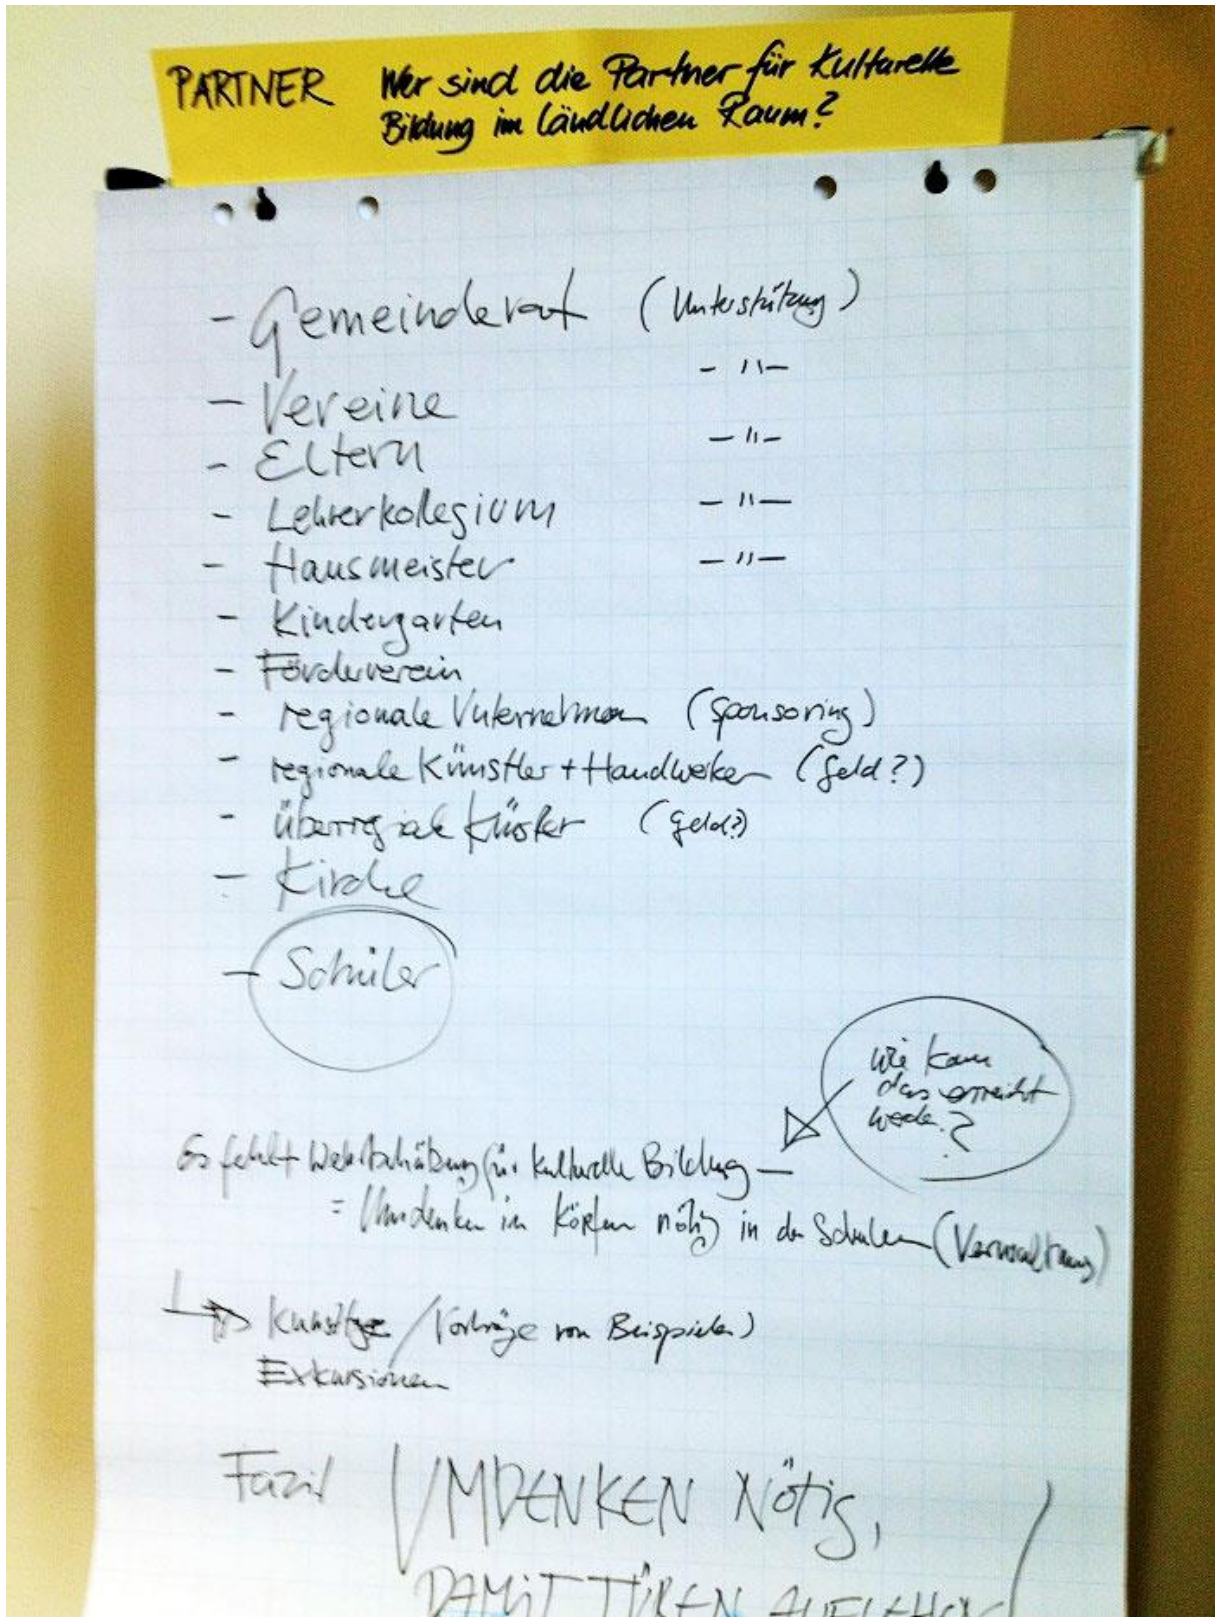 PARTNER Wer sind die Partner für Kulturelle
Bildung im ländlichen Raum?
- Gemeinderat (Unterstützung)
- "-
- Vereine
- "-
- Eltern
- "-
- Lehrerkollegium
- Hausmeister - "-
- Kindergarten
- Förderverein
- regionale Unternehmen (Sponsoring)
- regionale Künstler + Handwerker (Geld?)
- überregionale Künstler (Geld?)
- Kirche
- Schüler
Wie kann
das erreicht
werden?
Es fehlt Wertschätzung für kulturelle Bildung -
= Umdenken in Köpfen nötig in den Schulen (Verwaltung)
/ Vorträge von Beispielen)
Exkursionen
Fazit UMDENKEN NÖTIG,
DAMIT TÜREN AUFGEHEN